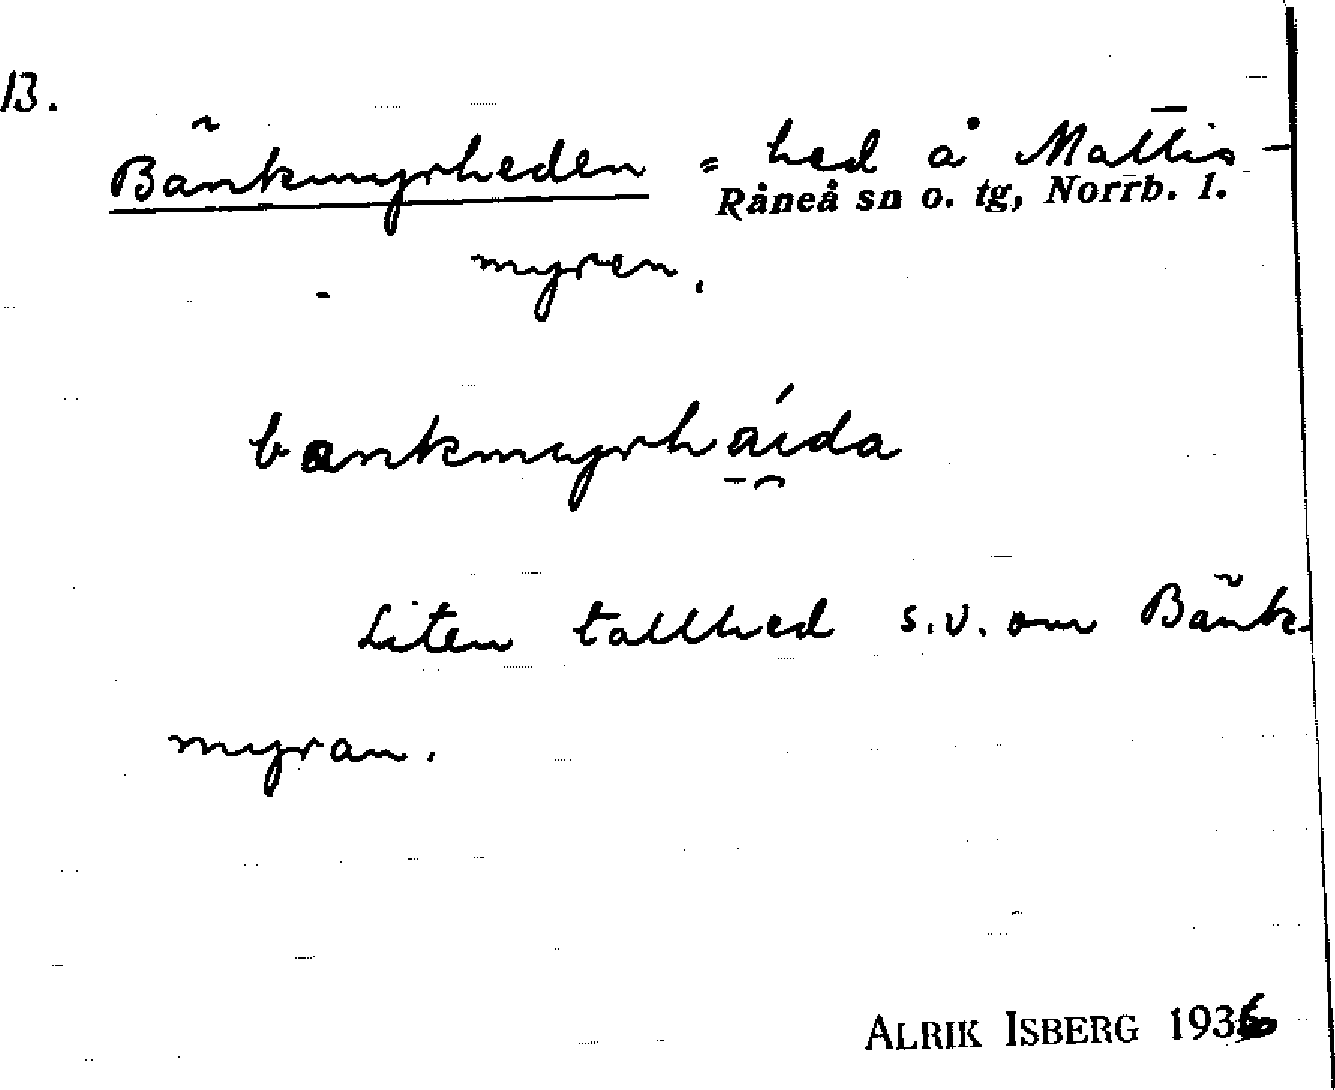 B.
Bänkmyrheden = hed å Mattis-
Råneå sn o. tg, Norrb. l.
myren.
bankmyrháida
Liten tallhed s.v. om Bänk-
myran.
ALRIK ISBERG 1936